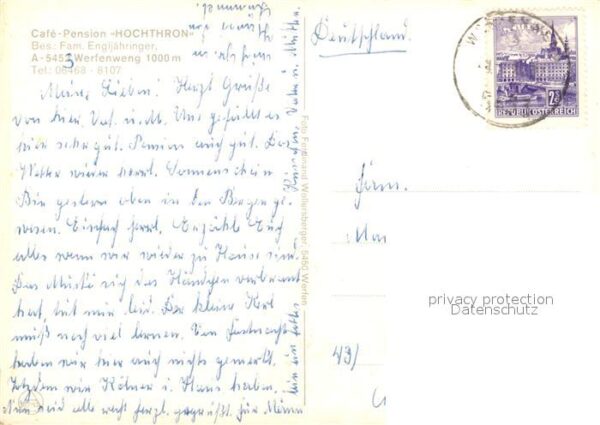 Café-Pension »HOCHTHRON«
Bes: Fam. Engljähringer,
A-5453 Werfenweng 1000 m
Tel: 06468 - 8107
Meine Lieben! Herzl. Grüße
von hier. Uns gefällt es
hier sehr gut. Pension auch gut. Das
Wetter wieder herrl. Sonnenschein
Bin gestern oben in den Bergen ge-
wesen. Einfach herrl. Erzähle Euch
alles wenn wir wieder zu Hause sind.
Das sich das Händchen verbrannt
hat, tut mir leid. Der kleine Kerl
muß noch viel lernen. Von Fastnacht
haben wir hier auch nichts gemerkt.
Trotzdem wir Kölner i. Haus haben.
Nun seid alle recht herzl. gegrüßt. Für
Foto Ferdinand Wollensberger 5450 Werfen
Deutschland.
Fam.
Ma
43/
2S
REPUBLIK ÖSTERREICH
privacy protection
Datenschutz